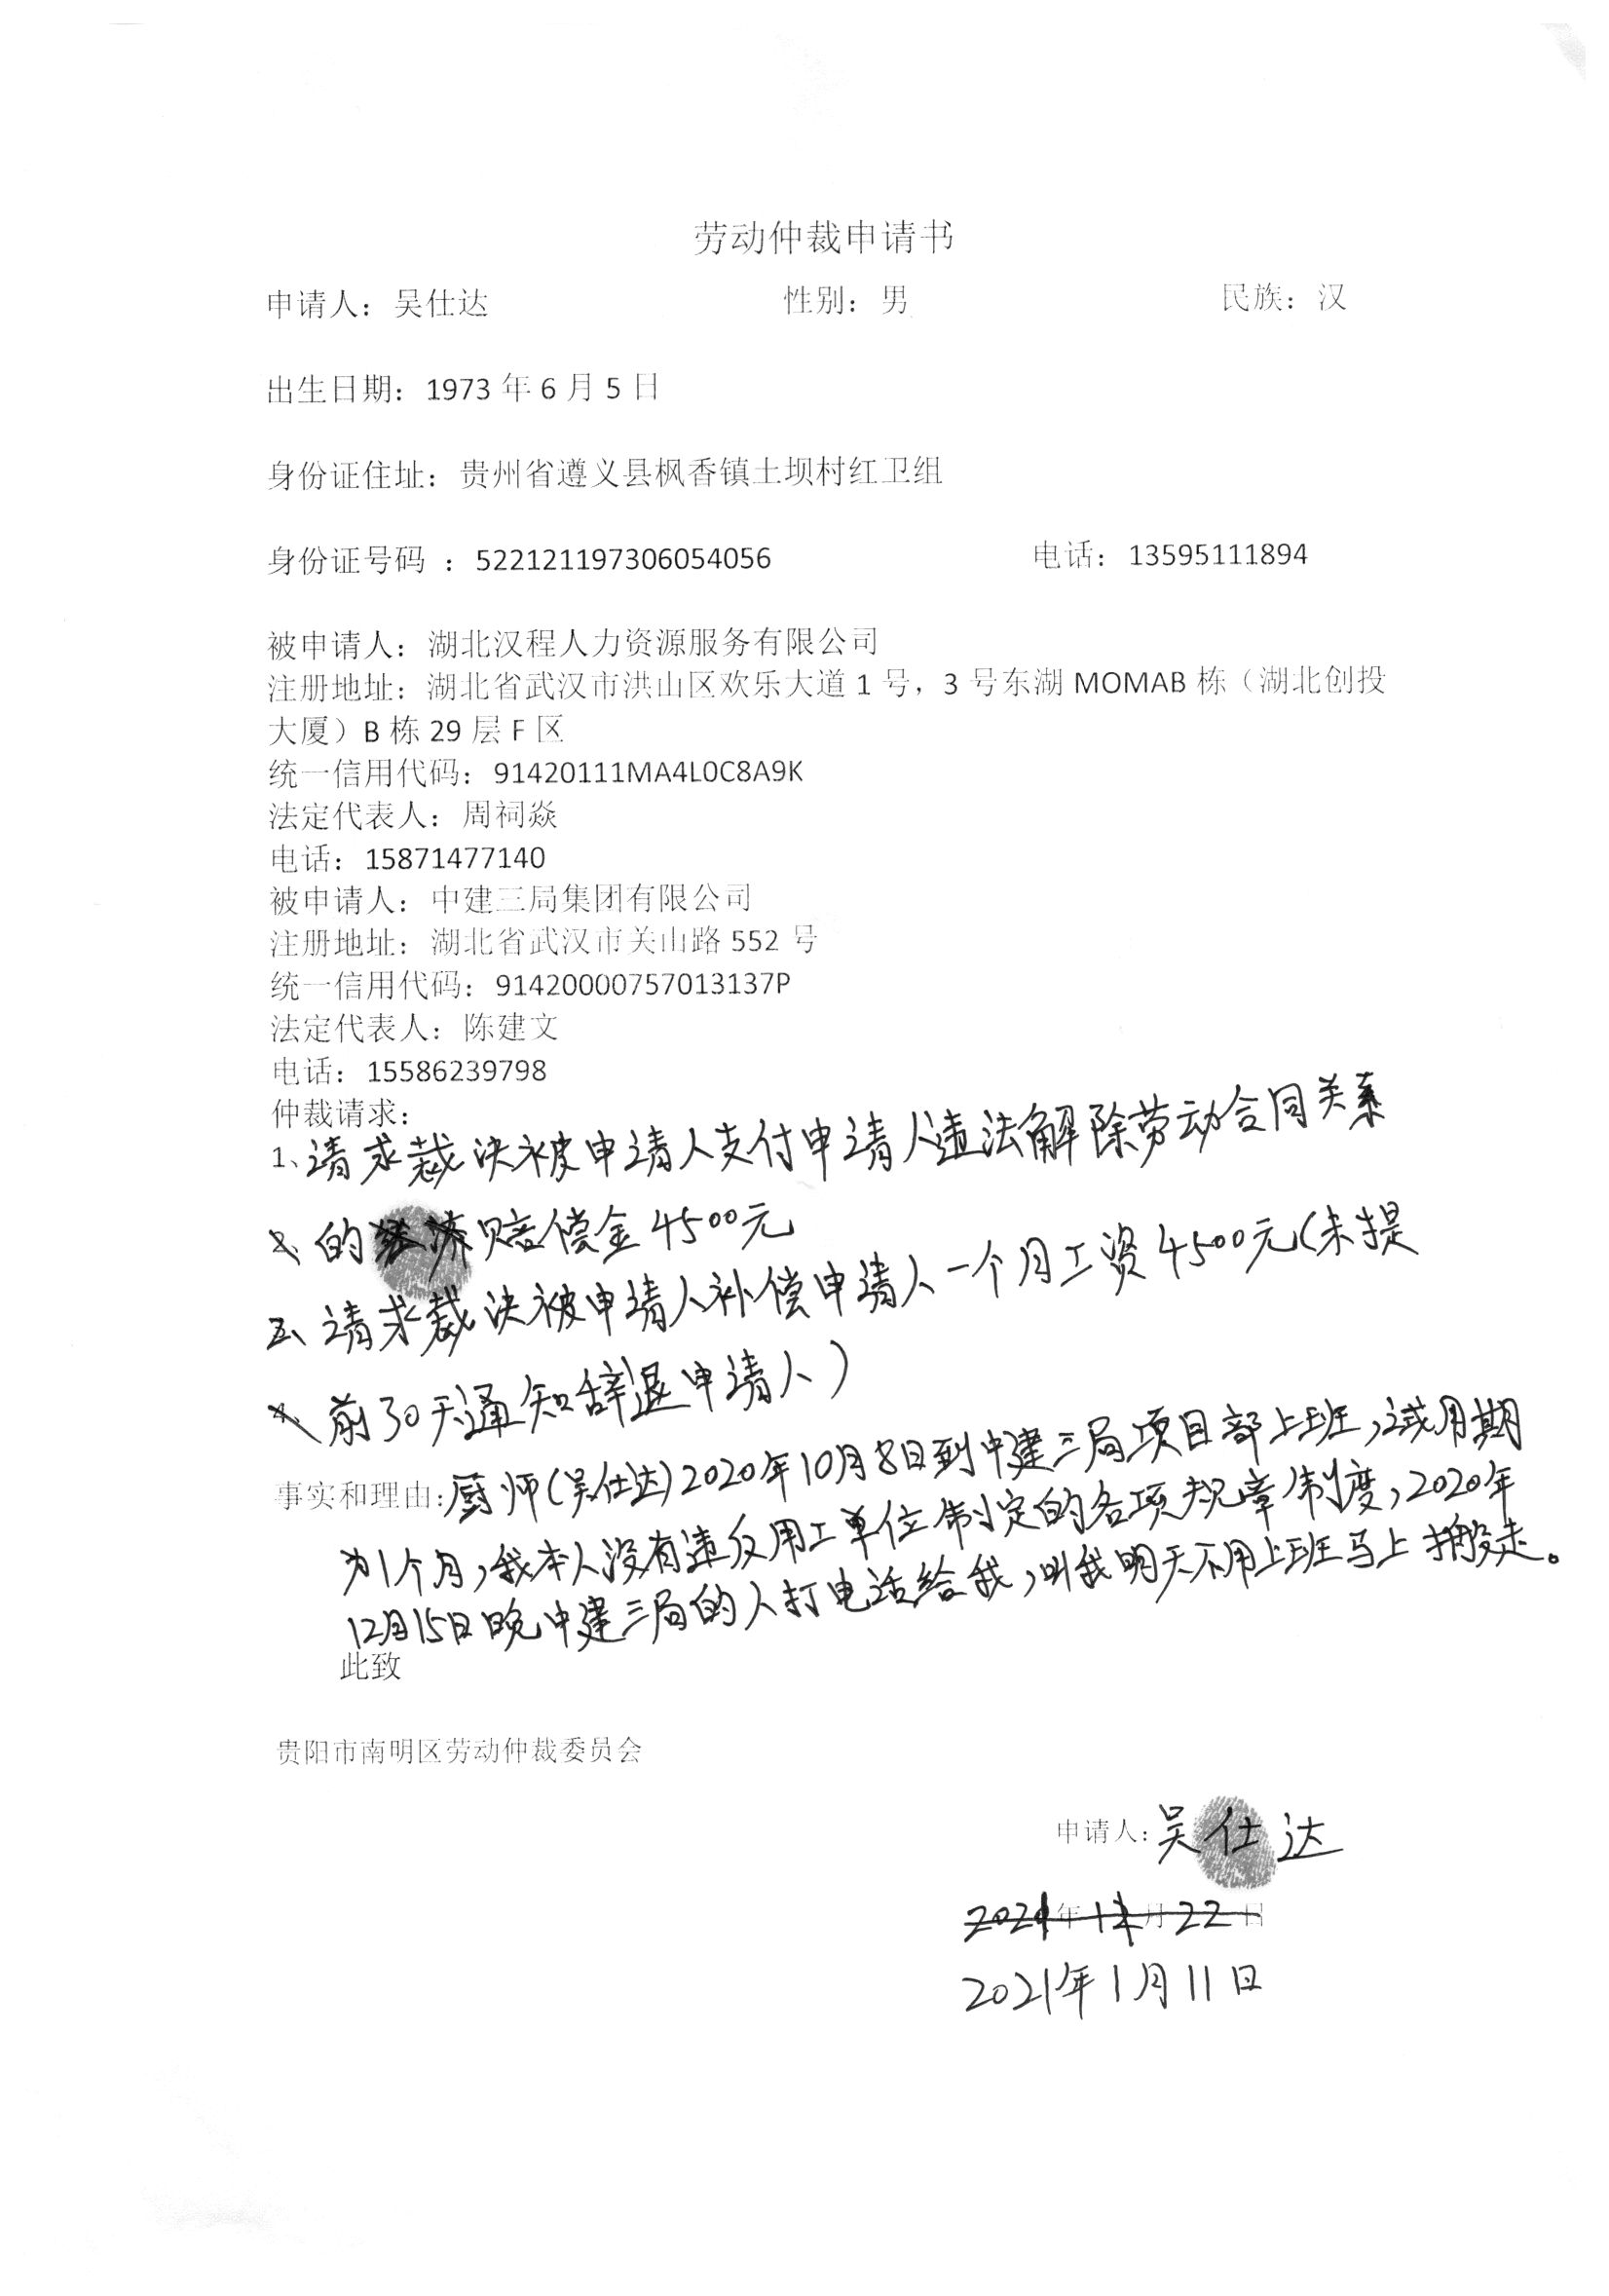 劳动仲裁申请书
申请人：吴仕达 性别：男 民族：汉
出生日期：1973 年 6 月 5 日
身份证住址：贵州省遵义县枫香镇土坝村红卫组
身份证号码 ：522121197306054056 电话：13595111894
被申请人：湖北汉程人力资源服务有限公司
注册地址：湖北省武汉市洪山区欢乐大道 1 号，3 号东湖 MOMAB 栋（湖北创投
大厦）B 栋 29 层 F 区
统一信用代码：91420111MA4L0C8A9K
法定代表人：周祠焱
电话：15871477140
被申请人：中建三局集团有限公司
注册地址：湖北省武汉市关山路 552 号
统一信用代码：91420000757013137P
法定代表人：陈建文
电话：15586239798
仲裁请求：
1、请求裁决被申请人支付申请人违法解除劳动合同关系
的赔偿金4500元
2、请求裁决被申请人补偿申请人一个月工资4500元(未提
前30天通知辞退申请人)
事实和理由:厨师(吴仕达)2020年10月8日到中建三局项目部上班,试用期
为1个月,我本人没有违反用工单位制定的各项规章制度,2020年
12月15日晚中建三局的人打电话给我,叫我明天不用上班马上搬走。
此致
贵阳市南明区劳动仲裁委员会
申请人:吴仕达
2021年12月22日
2021年1月11日